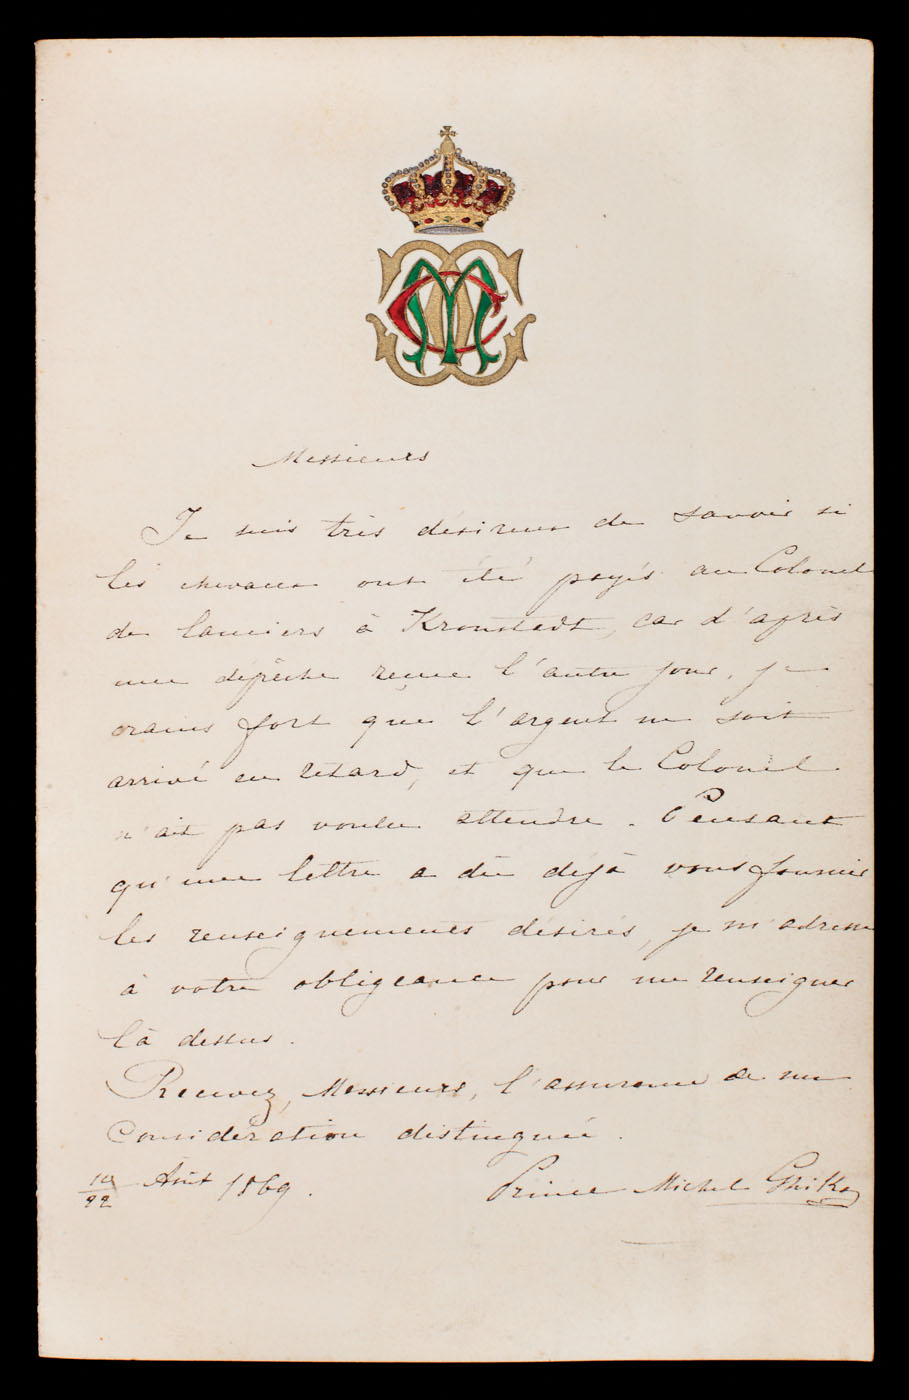 Messieurs
Je suis très désireux de savoir si
les chevaux ont été payés au Colonel
de lanciers à Kronstadt, car d'après
une dépêche reçue l'autre jour, je
crains fort que l'argent ne soit
arrivé en retard, et que le Colonel
n'ait pas voulu attendre. Pensant
qu'une lettre a dû déjà vous fournir
les renseignements désirés, je m'adresse
à votre obligeance pour me renseigner
là dessus.
Recevez, Messieurs, l'assurance de ma
considération distinguée.
10/22 Août 1869. Prince Michel Ghika